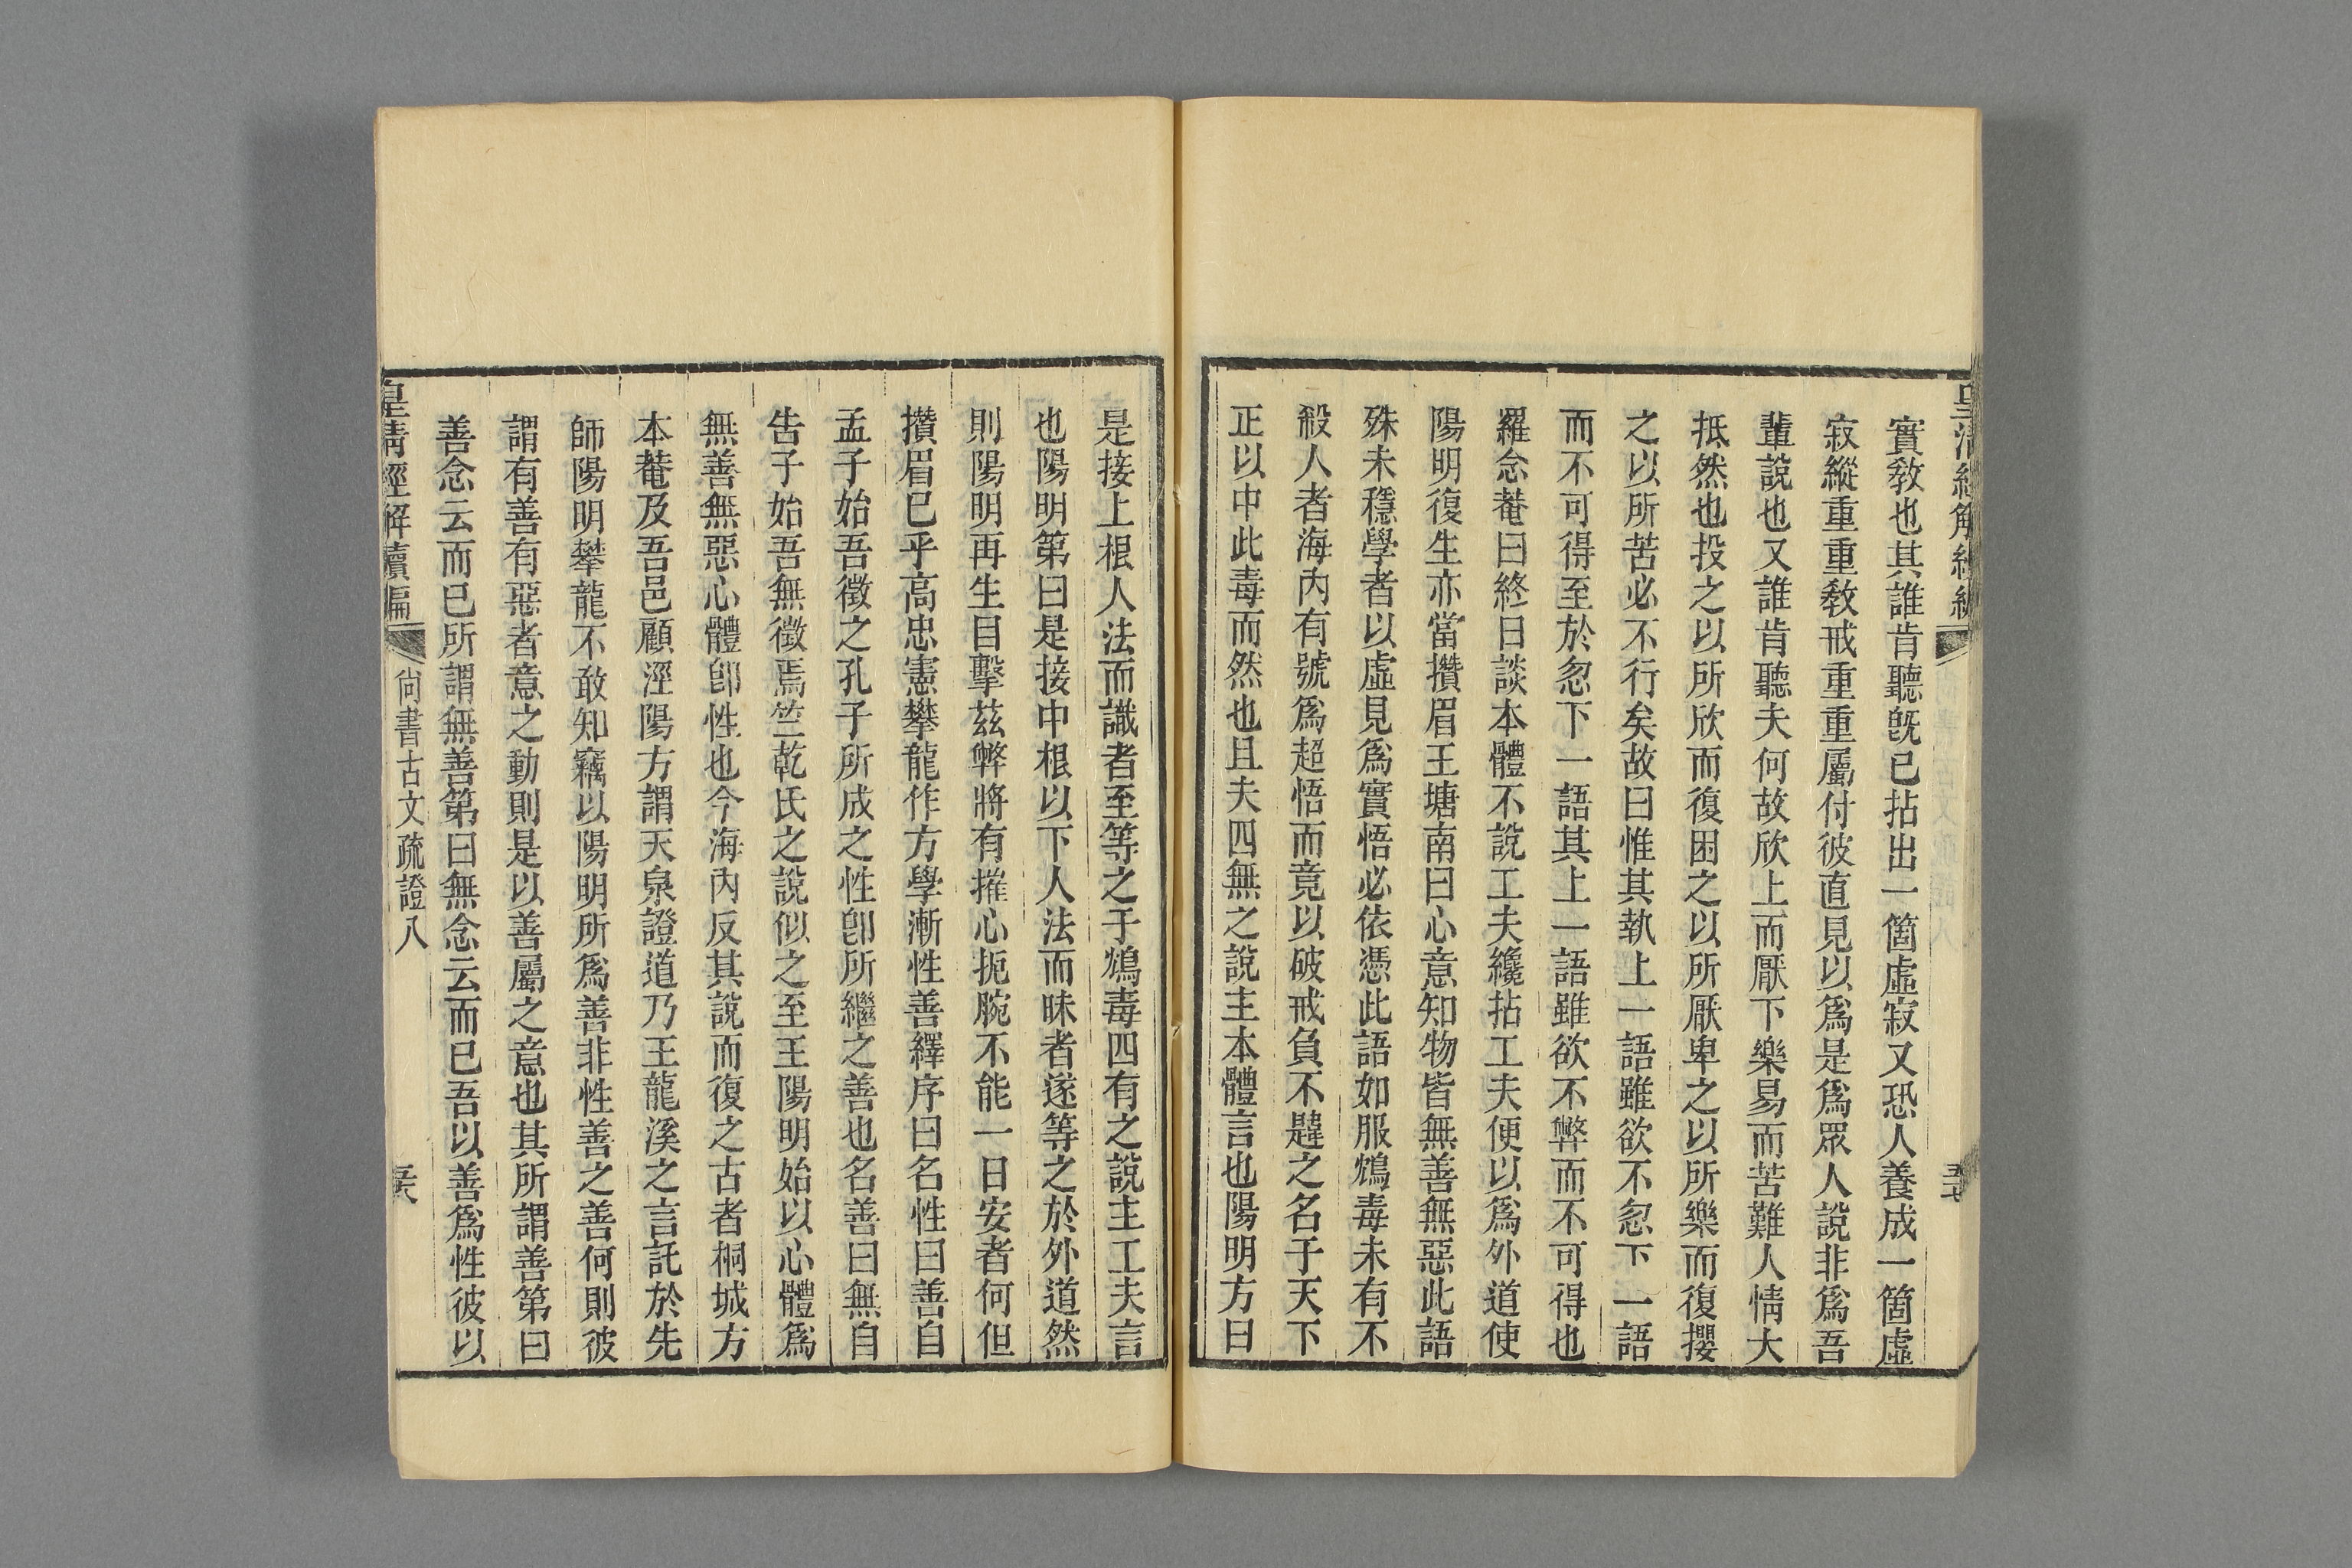 實敎也其誰肯聽旣已拈出一箇虛寂又恐人養成一箇虛
寂縱重重敎戒重重屬付彼直見以爲是爲眾人說非爲吾
輩說也又誰肯聽夫何故欣上而厭下樂易而苦難人情大
抵然也投之以所欣而復困之以所厭卑之以所樂而復攖
之以所苦必不行矣故曰惟其執上一語雖欲不忽下一語
而不可得至於忽下一語其上一語雖欲不弊而不可得也
羅念菴曰終日談本體不說工夫纔拈工夫便以爲外道使
陽明復生亦當攢眉王塘南曰心意知物皆無善無惡此語
殊未穩學者以虛見爲實悟必依憑此語如服鴆毒未有不
殺人者海內有號爲超悟而竟以破戒負不韙之名于天下
正以中此毒而然也且夫四無之說主本體言也陽明方曰
是接上根人法而識者至等之于鴆毒四有之說主工夫言
也陽明第曰是接中根以下人法而昧者遂等之於外道然
則陽明再生目擊茲弊將有摧心扼腕不能一日安者何但
攢眉已乎高忠憲攀龍作方學漸性善繹序曰名性曰善自
孟子始吾徵之孔子所成之性卽所繼之善也名善曰無自
告子始吾無徵焉竺乾氏之說似之至王陽明始以心體爲
無善無惡心體卽性也今海內反其說而復之古者桐城方
本菴及吾邑顧涇陽方謂天泉證道乃王龍溪之言託於先
師陽明攀龍不敢知竊以陽明所爲善非性善之善何則彼
謂有善有惡者意之動則是以善屬之意也其所謂善第曰
善念云而已所謂無善第曰無念云而已吾以善爲性彼以
皇清經解續編
尙書古文疏證八